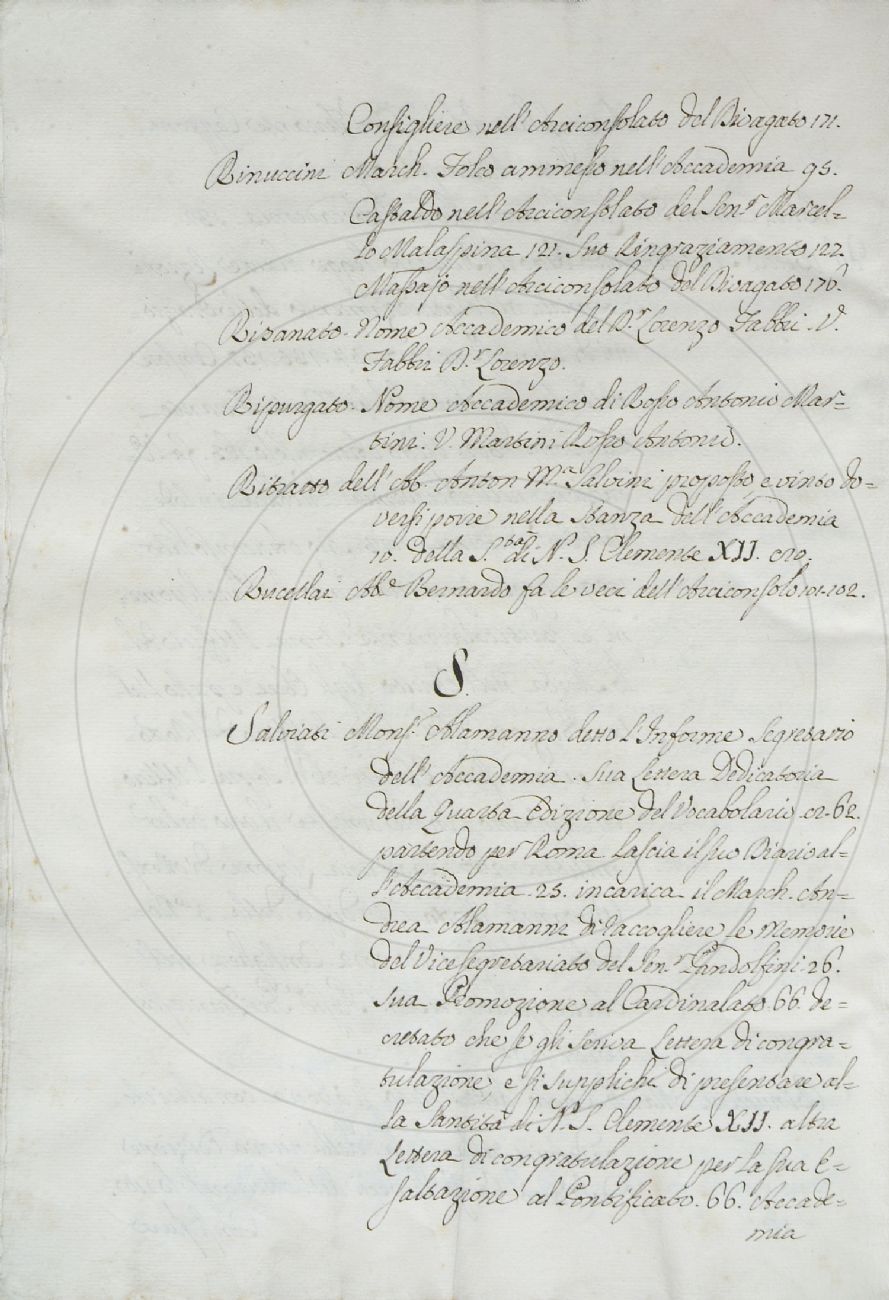 Consigliere nell'Arciconsolato del Divagato 171.
Rinuccini March. Folco ammesso nell'Accademia 95.
Castaldo nell'Arciconsolato del Sen.r Marcel=
lo Malaspina 121. suo Ringraziamento 122.
Massajo nell'Arciconsolato del Divagato 176.
Risanato. Nome Accademico del D.r Lorenzo Fabbri. V.
Fabbri D.r Lorenzo.
Ripurgato. Nome Accademico di Rosso Antonio Mar=
tini. V. Martini Rosso Antonio.
Ritratto dell'Ab. Anton M.a Salvini proposto e vinto do=
versi porre nella stanza dell'Accademia
10. della S.tà di N. S. Clemente XII.
Rucellai Ab.e Bernardo fa le veci dell'Arciconsolo 101. 102.
S.
Salviati Mons.r Alamanno detto l'Informe Segretario
dell'Accademia. sua Lettera Dedicatoria
della Quarta Edizione del Vocabolario 62.
partendo per Roma lascia il suo Diario al=
l'Accademia. 25. incarica il March. An=
drea Alamanni di raccogliere le memorie
del Vicesegretariato del Sen.r Pandolfini. 26.
sua Promozione al Cardinalato. 66. de=
cretato che se gli scriva Lettera di congra=
tulazione, e si supplichi di presentare al=
la Santità di N. S. Clemente XII. altra
Lettera di congratulazione per la sua E=
saltazione al Pontificato. 66. Accade=
mia